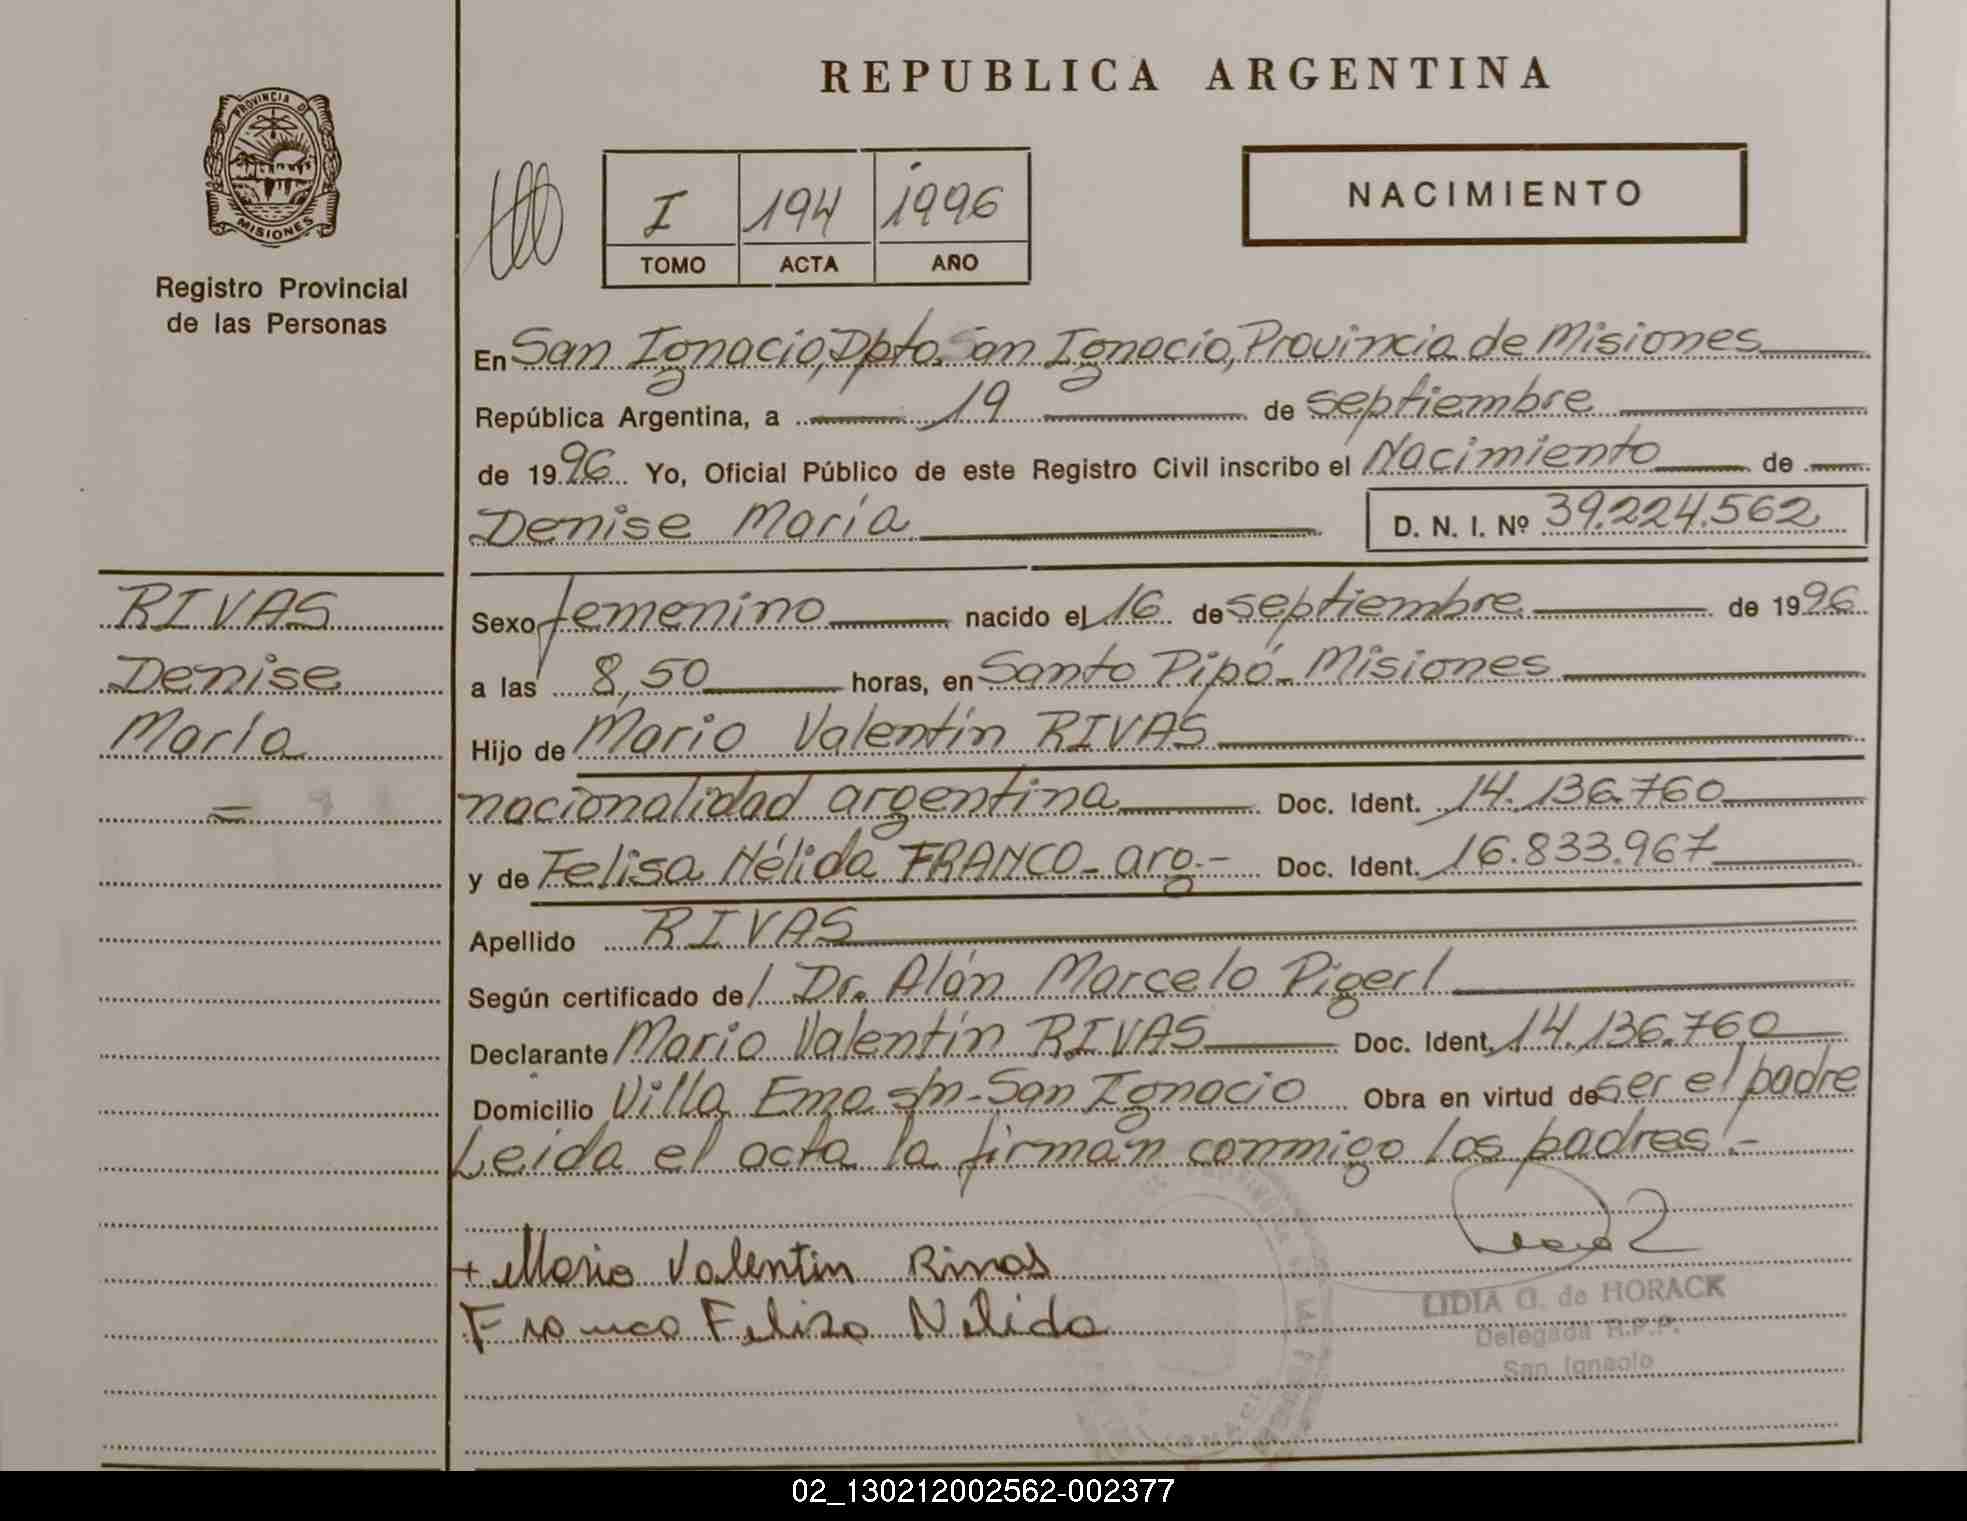 REPUBLICA ARGENTINA
PROVINCIA D
MISIONES
Registro Provincial
de las Personas
I 194 1996
TOMO ACTA AÑO
NACIMIENTO
En San Ignacio, Dpto. San Ignacio, Provincia de Misiones
República Argentina, a 19 de septiembre
de 1996 Yo, Oficial Público de este Registro Civil inscribo el Nacimiento de
Denise María D. N. I. Nº 39.224.562
RIVAS
Denise
María
=
Sexo femenino nacido el 16 de septiembre de 1996
a las 8,50 horas, en Santo Pipó - Misiones
Hijo de Mario Valentín RIVAS
nacionalidad argentina Doc. Ident. 14.136.760
y de Felisa Nélida FRANCO - arg.- Doc. Ident. 16.833.967
Apellido RIVAS
Según certificado de/ Dr. Alán Marcelo Pigerl
Declarante Mario Valentín RIVAS Doc. Ident. 14.136.760
Domicilio Villa Ema s/n - San Ignacio Obra en virtud de ser el padre
Leída el acta la firman conmigo los padres.-
+ Mario Valentin Rivas
Franco Felisa Nelida
LIDIA G. de HORACK
Delegada R.P.P.
San Ignacio
02_130212002562-002377